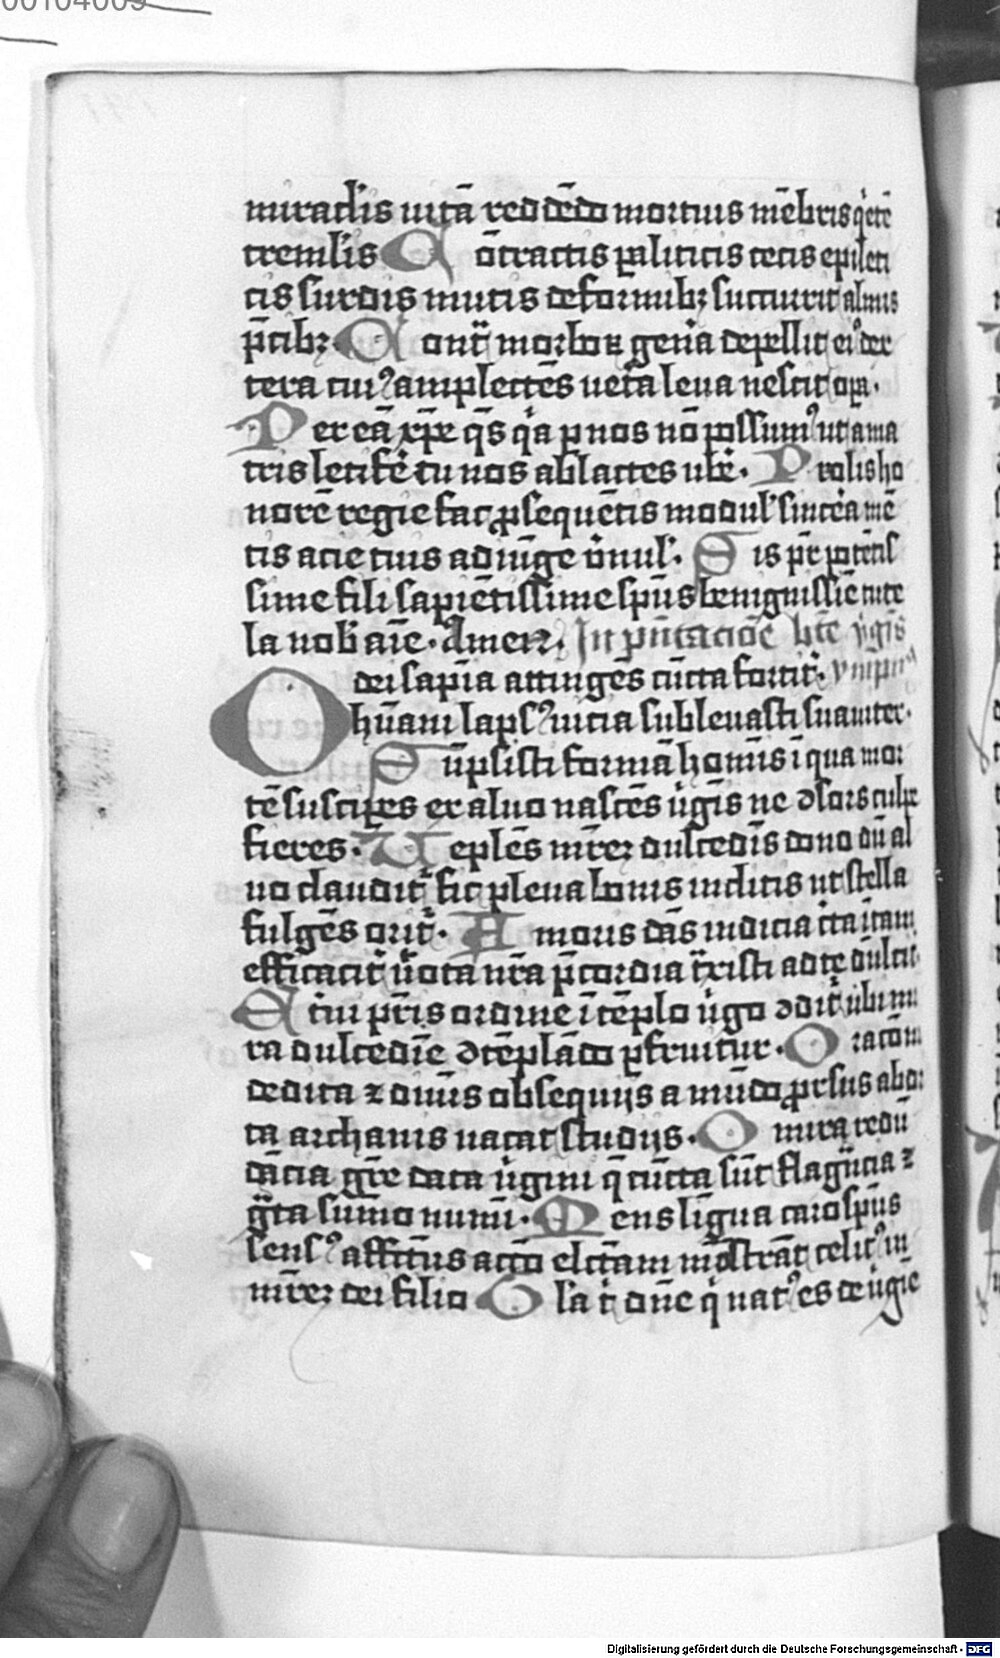 00104009
miraclis uitā reddēdo mortuis mēbris q̇etē
tremlis Cōtractis paliticis cecis epileti
cis surdis mutis deformibꝫ succurrit almis
p̄cibꝫ Cont̃ morboꝝ geña depellit ei᷒ dex
tera cui᷒ amplectēs uet̃a leua nescit opa.
Per eā xp̄e q̄s q̇a p nos nō possum᷒ ut ama
tris letifẽ tu nos ablactes ubẽ. Prolis ho
norē regie fac ꝓsequētis modul' sincẽa mē
tis acie tuis adiūge v̇nul'. Sis pr̄ potētis
sime fili sapiētissime sp̄us benignissiē tute
la nob' aīe. Amen. In p̄ntacioē bt̄e v̇gīs
O dei sap̄ia attingēs cūcta fortit̃. ympn᷒
hūani laps᷒ inicia subleuasti suauiter.
Sūpsisti formā homīs ī qua mor
tē suscipēs ex aluo nascēs v̇gīs ne ↄsors culpe
fieres. Replēs mr̄eꝫ dulcedīs dono dū al
uo claudit̃ sic plena bonis inclitis ut stella
fulgēs orit̃. Amoris dās indicia
efficacit̃ v̇ota nr̄a p̄cordia t̃xisti ad te dulcit̃
ordine ī tēplo v̇go ↄdit̃ ubi mi
ra dulcedīe ↄtēplādo pfruitur. Oracōni
dedita ⁊ diuīs obsequijs a mūdo ꝓrsus abdi
ta archanis uacat studijs. O mira redū
dācia gr̄e data v̇gini q̄ cūcta sūt flagrācia ⁊
gr̄ta sūmo numī. Mens lingua caro sp̄us
sens᷒ affect᷒us actō elctam mōstrāt celit᷒ in
mr̄eꝫ dei filio Gl'a t' dn̄e q' nat᷒ es de v̇gīe
Digitalisierung gefördert durch die Deutsche Forschungsgemeinschaft - DFG